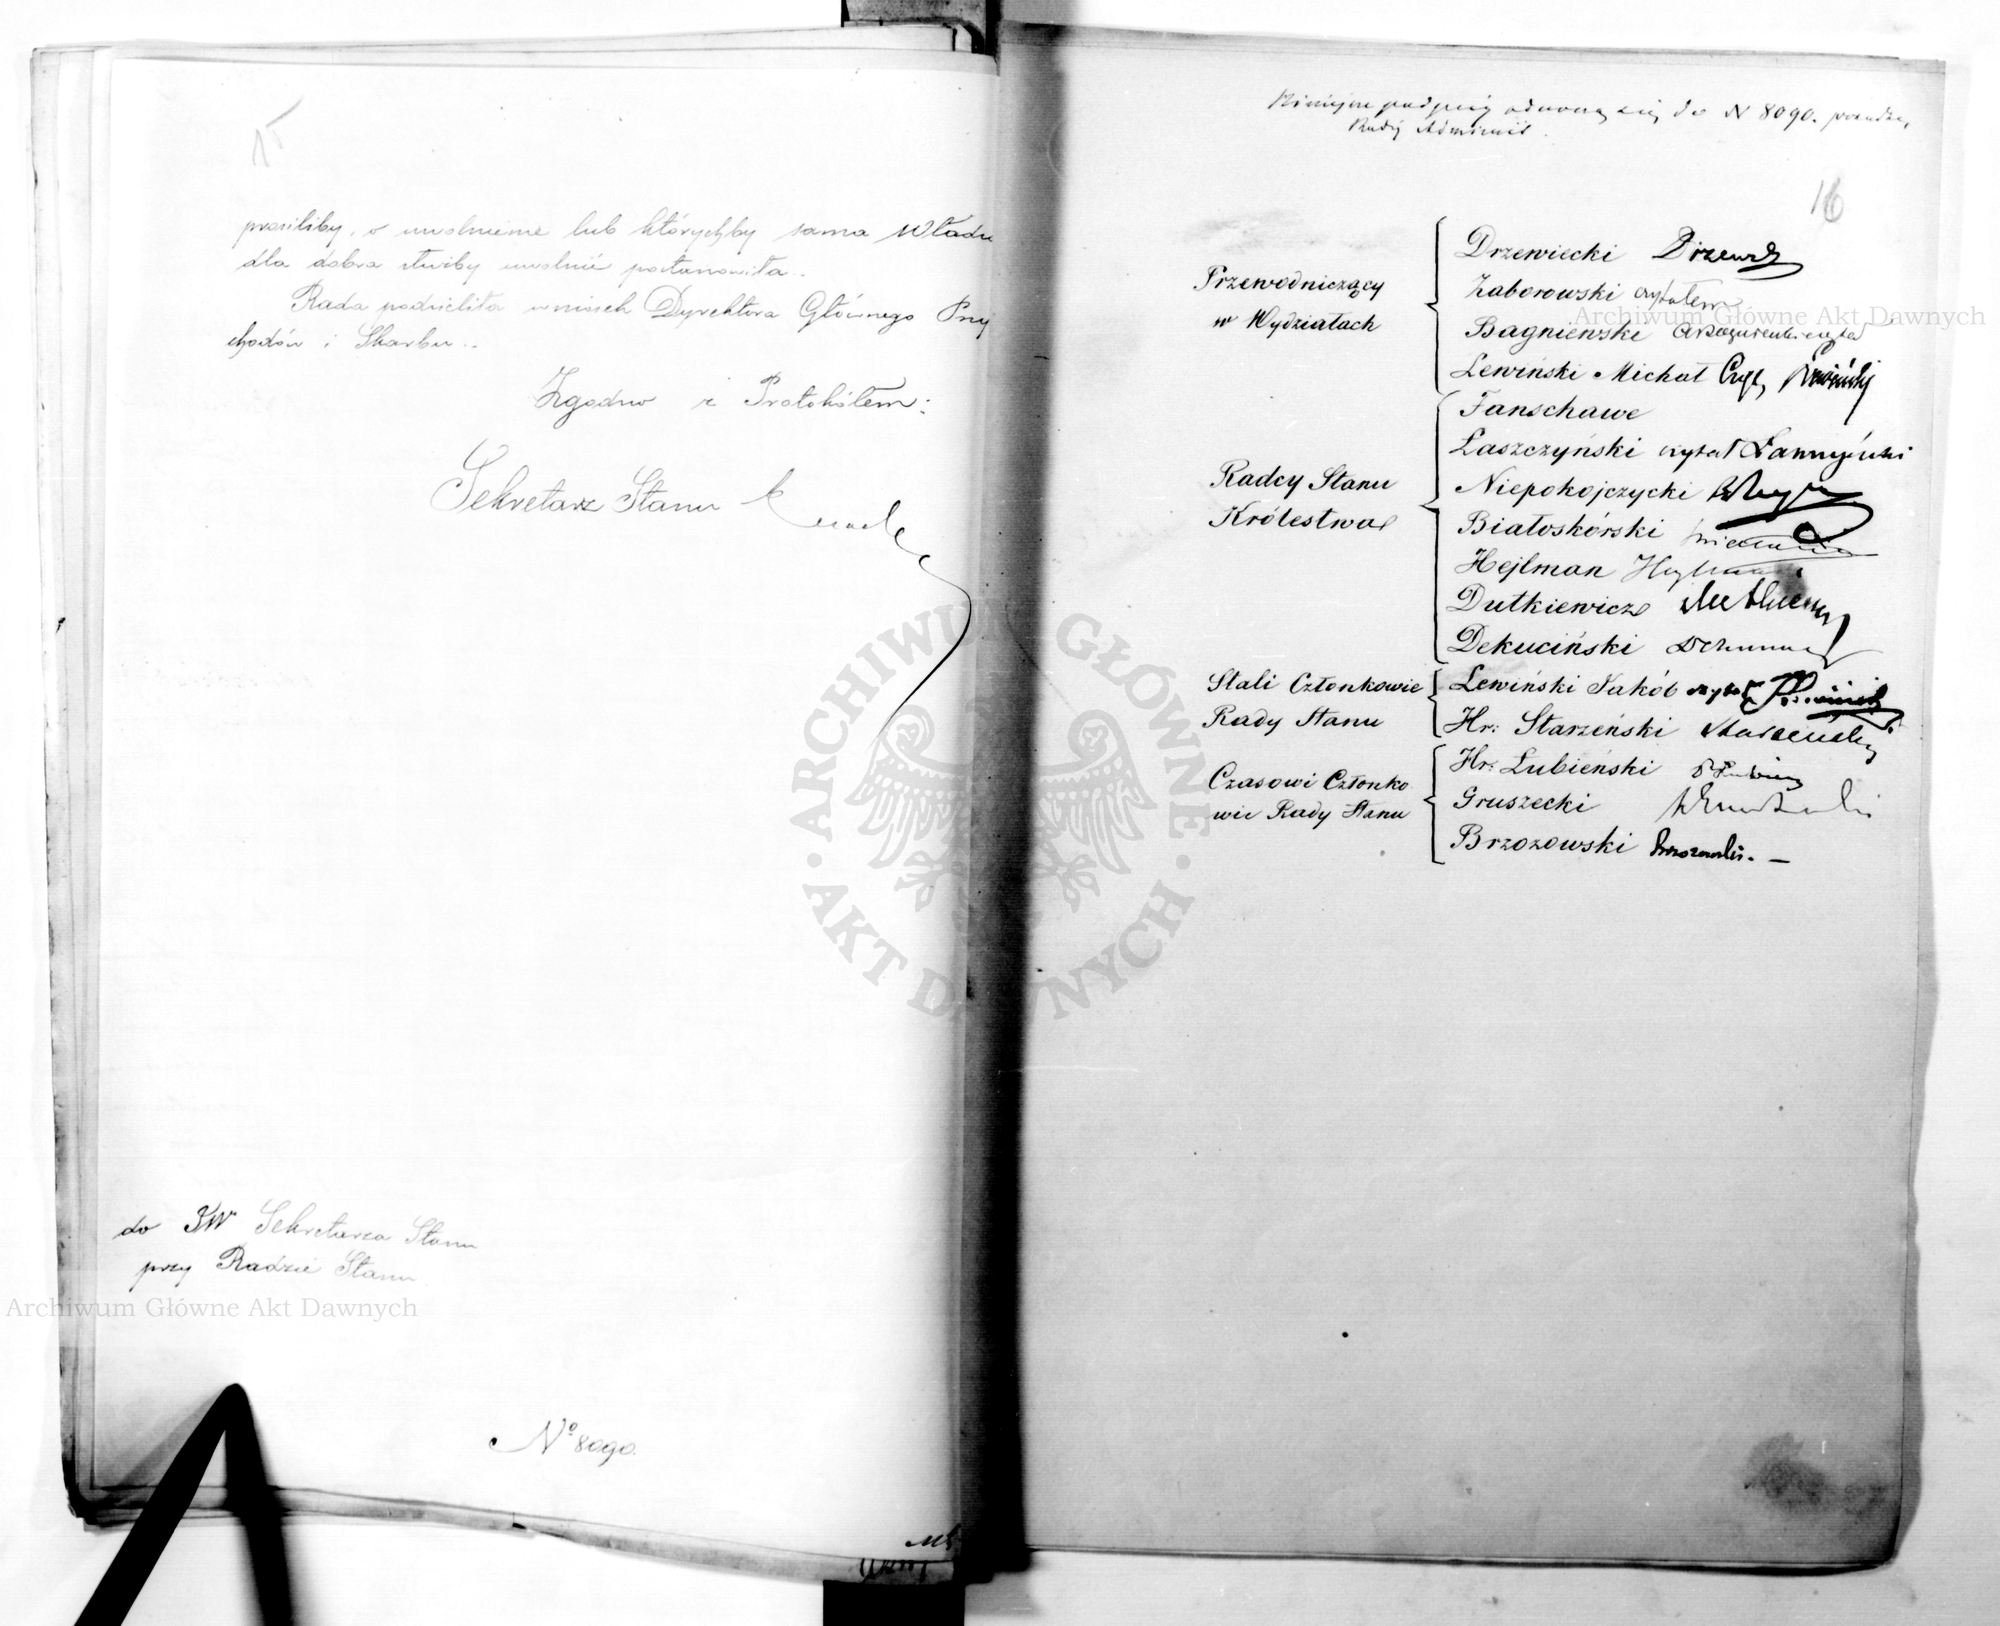 15
prosiliby, o uwolnienie lub którychby sama Władza
dla dobra służby uwolnić postanowiła.
Rada podzieliła wniosek Dyrektora Głównego Przy
chodów i Skarbu.
Zgodno z Protokółem:
Sekretarz Stanu
do JW Sekretarza Stanu
przy Radzie Stanu
No 8090.
Niniejsze podpisy odnoszą się do N 8090.
Rady Administ.
16
Przewodniczący
w Wydziałach
Drzewiecki
Zaborowski czytałem
Bagniewski
Lewiński Michał Czyt,
Radcy Stanu
Królestwa
Fanschawe
Łaszczyński czytał Łaszczyński
Niepokojczycki
Białoskórski
Hejlman
Dutkiewicz
Dekuciński
Stali Członkowie
Rady Stanu
Lewiński Jakób czytał
Hr: Starzeński Starzeński
Czasowi Członko
wie Rady Stanu
Hr: Łubieński
Gruszecki
Brzozowski Brzozowski. —
Archiwum Główne Akt Dawnych
Archiwum Główne Akt Dawnych
ARCHIWUM GŁÓWNE · AKT DAWNYCH ·